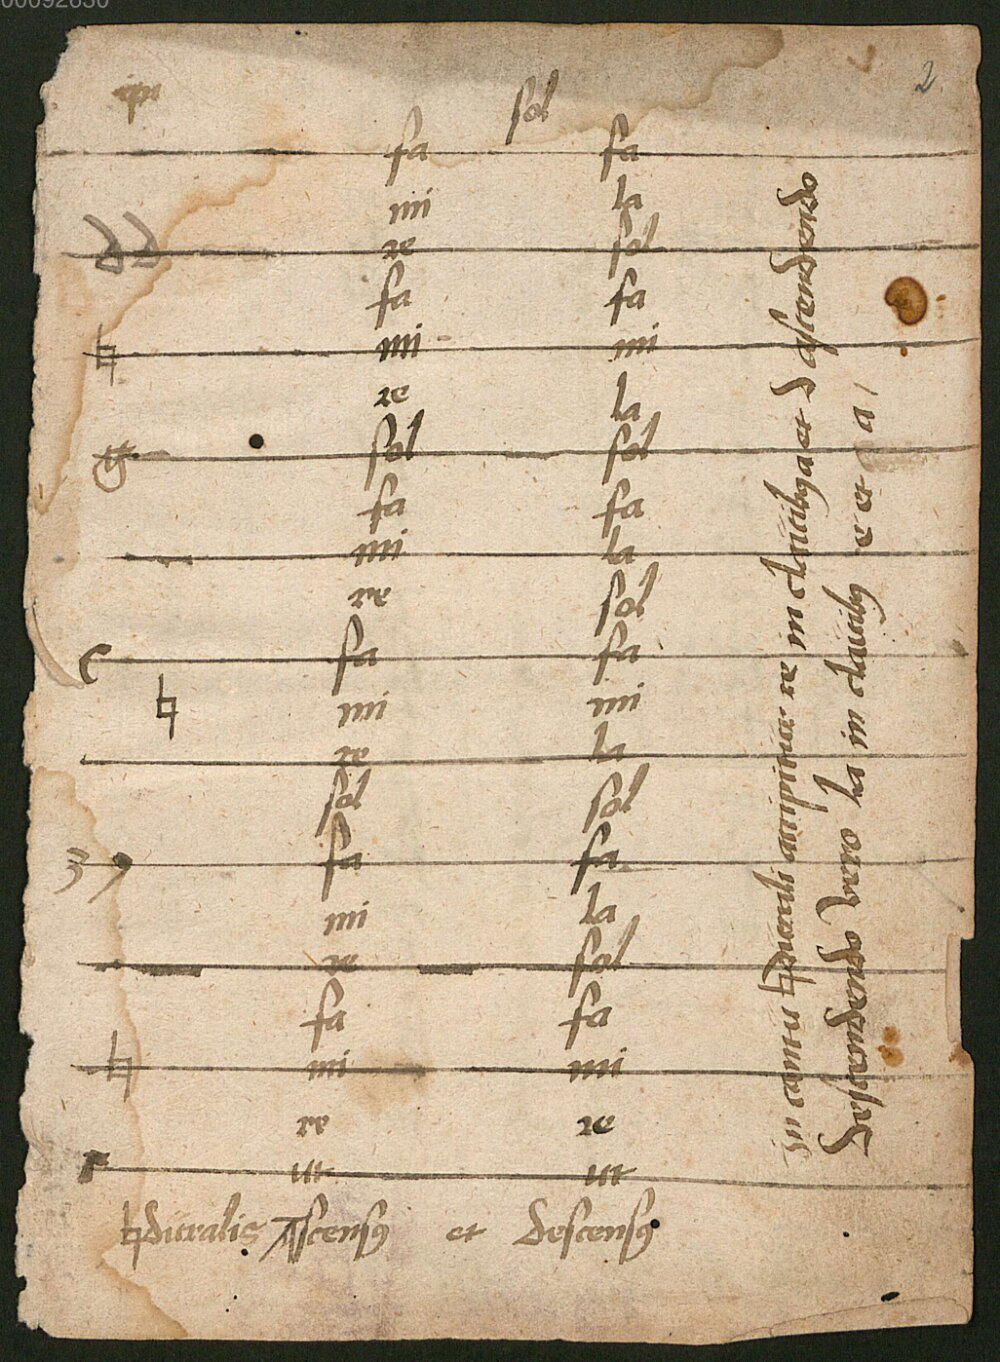 00092850
2
sol
fa fa
mi la
re sol
fa fa
♮ mi mi
re la
g sol sol
fa fa
mi la
re sol
c fa fa
♮ mi mi
re la
sol sol
fa fa
mi la
re sol
fa fa
♮ mi mi
re re
Γ ut ut
♮duralis Ascensꝰ et descensꝰ
In cantu ♮durali accipitur re in clauibꝰ a et d ascendendo
descendendo vero la in clauibꝰ e et a /